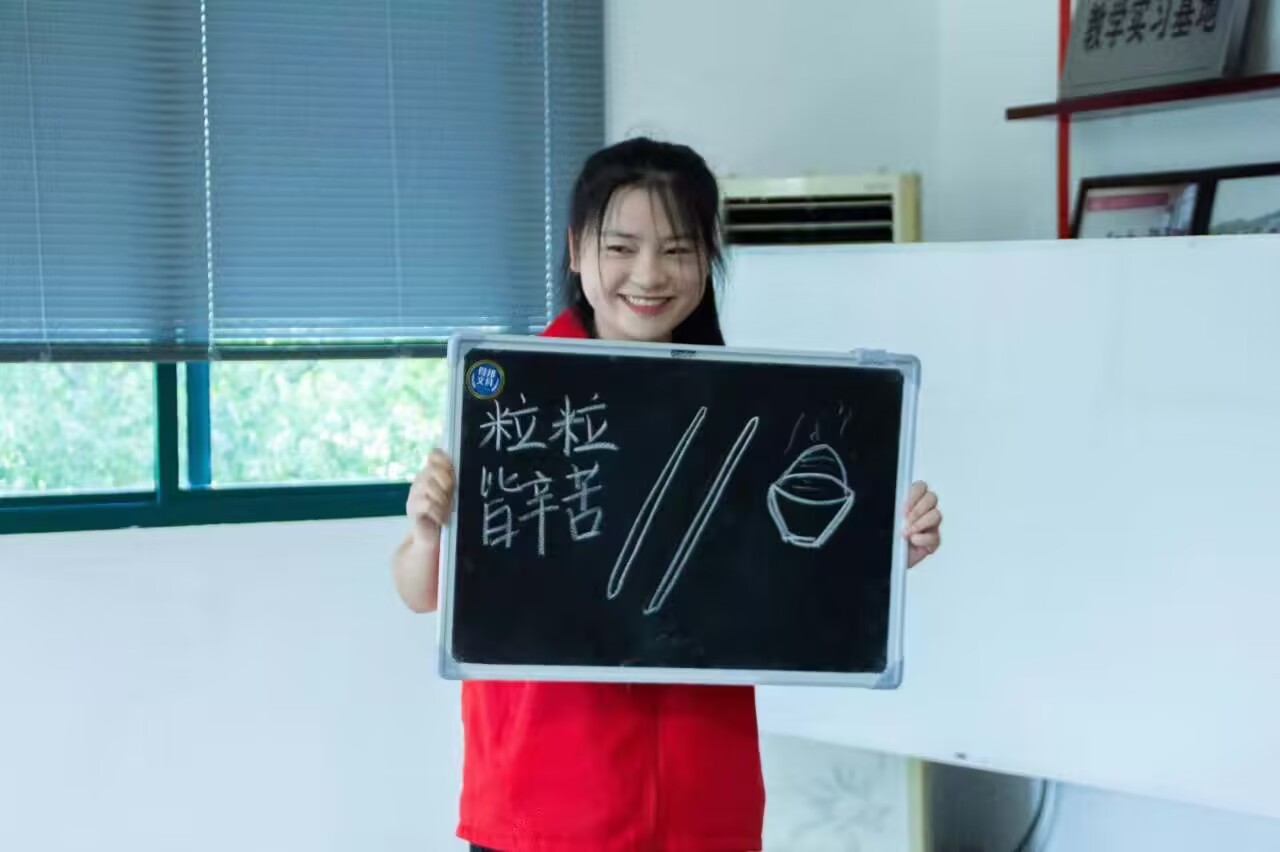 教学实习基地
粒粒
皆辛苦